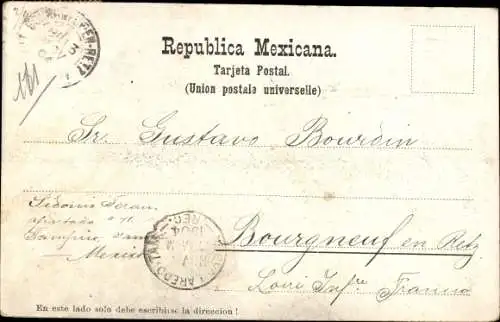 Republica Mexicana.
Tarjeta Postal.
(Union postale universelle)
181
Sr. Gustavo Bourdin
Sidonio
apartado # 71
Tampico
Mexico
Bourgneuf en Retz
Loire Infre Francia
LAREDO, TEX.
1904
REC.
EN-RETZ
En este lado solo debe escribirse la direccion!